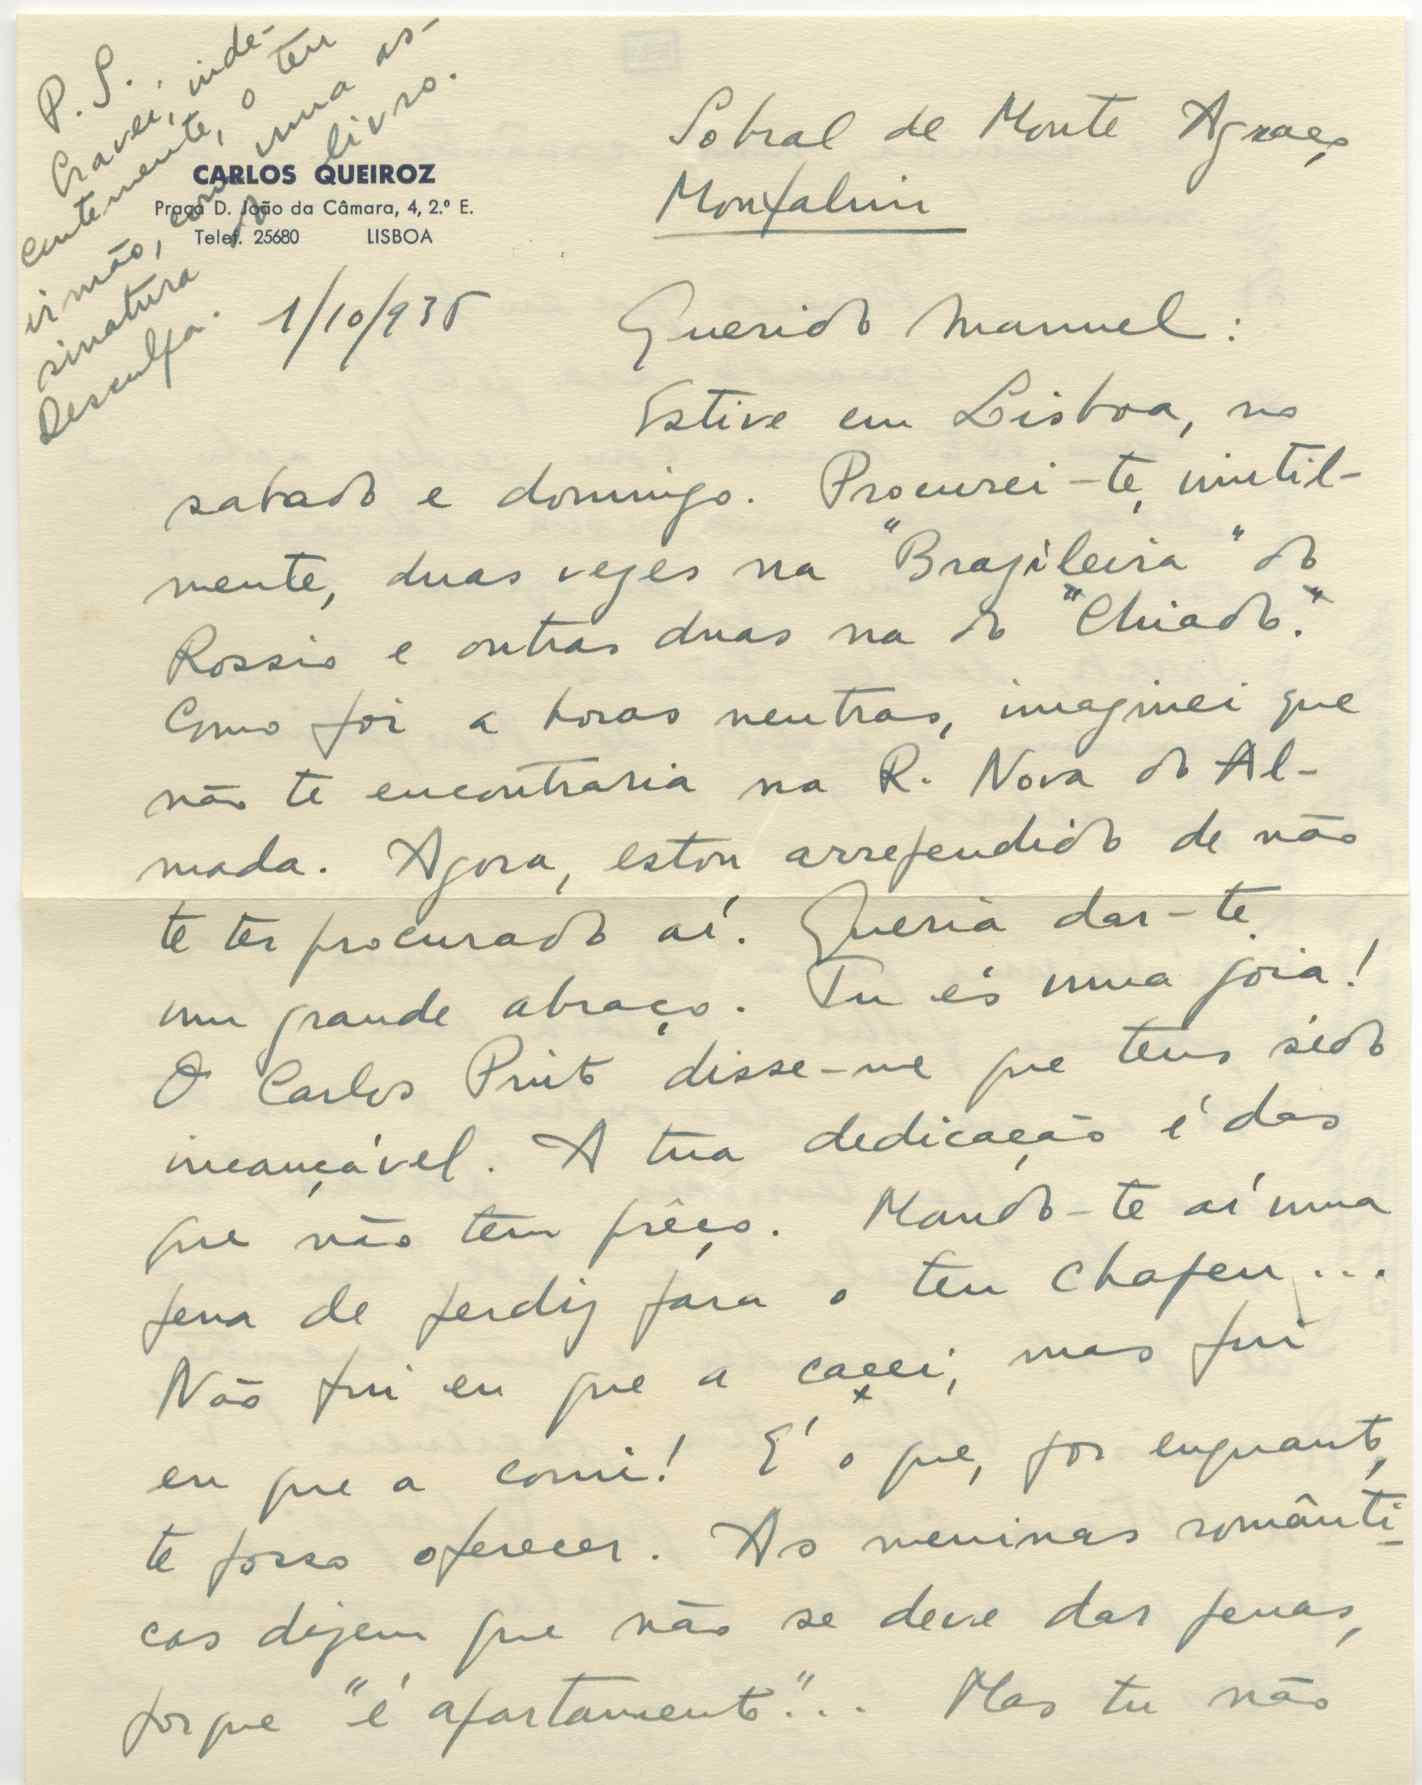 P. S.
Cravei, inde-
centemente, o teu
irmão, com uma as-
sinatura do livro.
Desculpa.
CARLOS QUEIROZ
Praça D. João da Câmara, 4, 2.º E.
Telef. 25680 LISBOA
Sobral de Monte Agraço
Monfalim
1/10/935
Querido Manuel:
Estive em Lisboa, no
sabado e domingo. Procurei-te, inutil-
mente, duas vezes na "Brazileira" do
Rossio e outras duas na do "Chiado".
Como foi a horas neutras, imaginei que
não te encontraria na R. Nova do Al-
mada. Agora, estou arrependido de não
te ter procurado aí. Queria dar-te
um grande abraço. Tu és uma joia!
O Carlos Pinto disse-me que tens sido
incançável. A tua dedicação é das
que não tem prêço. Mando-te aí uma
pena de perdiz para o teu chapeu...
Não fui eu que a cacei, mas fui
eu que a comi! E' o que, por enquanto,
te posso oferecer. As meninas românti-
cas dizem que não se deve dar penas,
porque "é apartamento"... Mas tu não